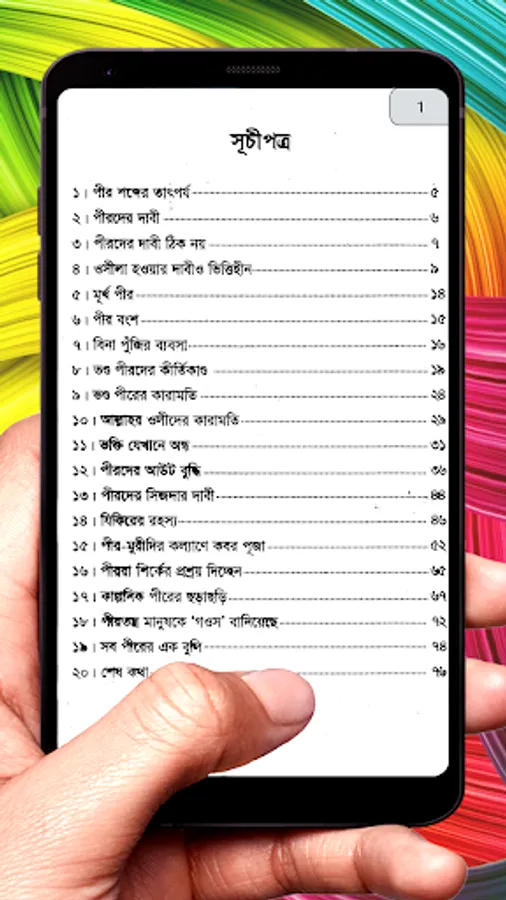 1
সূচীপত্র
১। পীর শব্দের তাৎপর্য ৫
২। পীরদের দাবী ৬
৩। পীরদের দাবী ঠিক নয় ৭
৪। ওসীলা হওয়ার দাবীও ভিত্তিহীন ৯
৫। মূর্খ পীর ১৪
৬। পীর বংশ ১৫
৭। বিনা পুঁজির ব্যবসা ১৬
৮। ভণ্ড পীরদের কীর্তিকাণ্ড ১৯
৯। ভণ্ড পীরের কারামতি ২৪
১০। আল্লাহর ওলীদের কারামতি ২৯
১১। ভক্তি যেখানে অন্ধ ৩১
১২। পীরদের আউট বুদ্ধি ৩৬
১৩। পীরদের সিজদার দাবী ৪৪
১৪। যিকিরের রহস্য ৪৬
১৫। পীর-মুরীদির কল্যাণে কবর পূজা ৫২
১৬। পীররা শির্কের প্রশ্রয় দিচ্ছেন ৬৫
১৭। কাল্পনিক পীরের ছড়াছড়ি ৬৭
১৮। পীরতন্ত্র মানুষকে ‘গওস’ বানিয়েছে ৭২
১৯। সব পীরের এক বুলি ৭৪
২০। শেষ কথা ৭৬